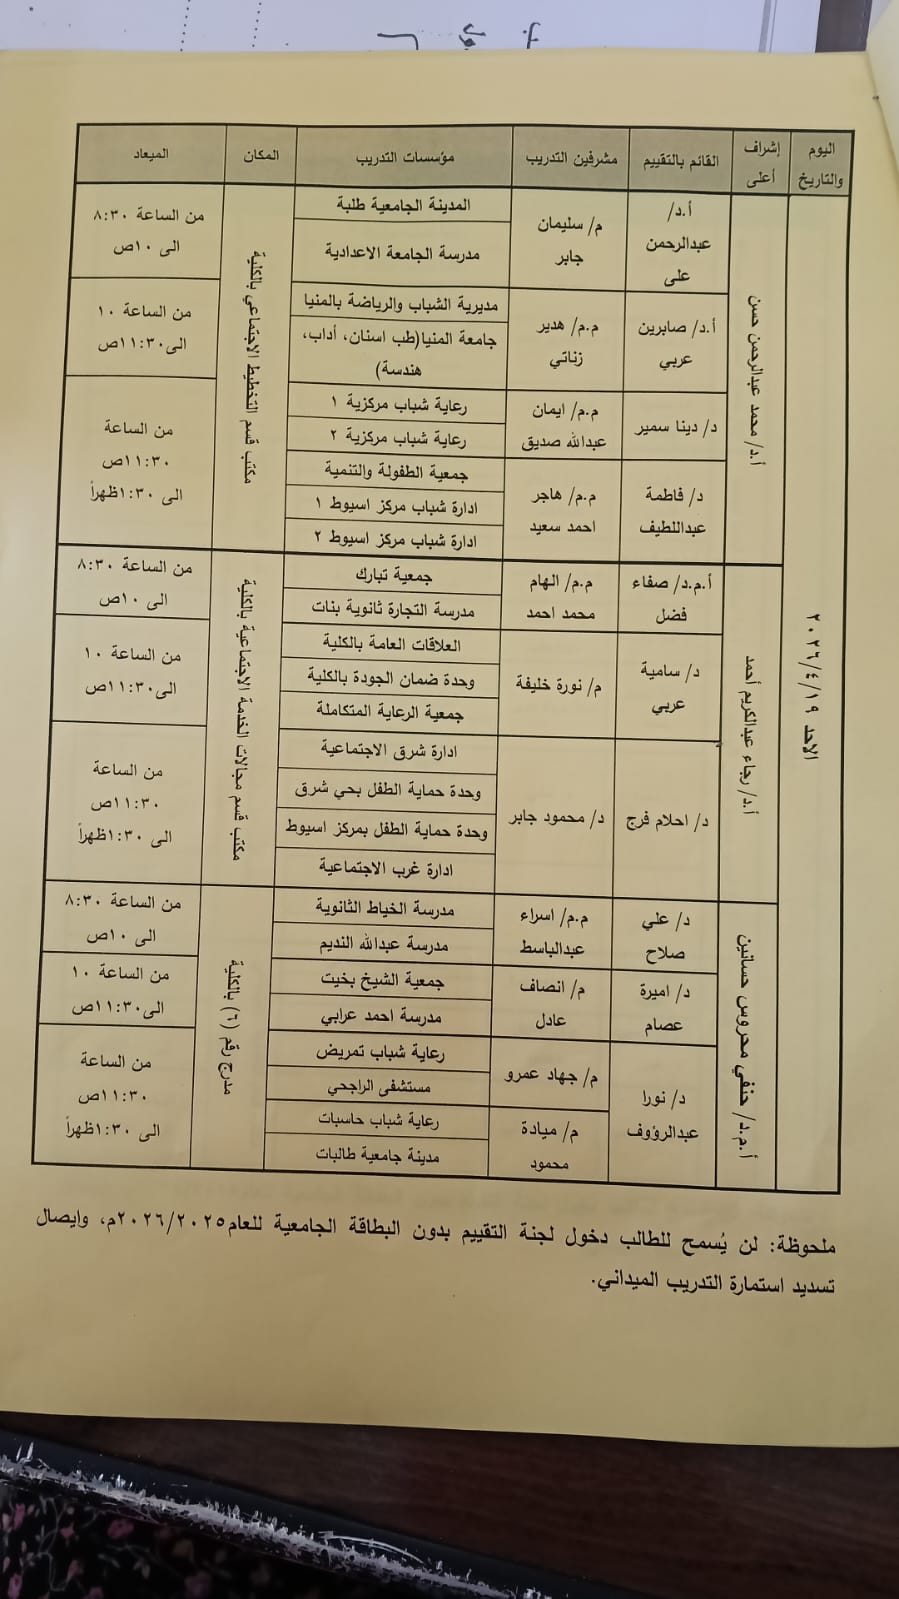 اليوم والتاريخ | إشراف أعلى | القائم بالتقييم | مشرفين التدريب | مؤسسات التدريب | المكان | الميعاد
الاحد ٢٠٢٦/٤/١٩
أ.د/ محمد عبدالرحمن حسن
أ.د/ عبدالرحمن على
م/ سليمان جابر
المدينة الجامعية طلبة
مدرسة الجامعة الاعدادية
أ.د/ صابرين عربي
م.م/ هدير زناتي
مديرية الشباب والرياضة بالمنيا
جامعة المنيا(طب اسنان، أداب،
هندسة)
د/ دينا سمير
م.م/ ايمان عبدالله صديق
رعاية شباب مركزية ١
رعاية شباب مركزية ٢
د/ فاطمة عبداللطيف
م.م/ هاجر احمد سعيد
جمعية الطفولة والتنمية
ادارة شباب مركز اسيوط ١
ادارة شباب مركز اسيوط ٢
مكتب قسم التخطيط الاجتماعي بالكلية
من الساعة ٨:٣٠
الى ١٠ص
من الساعة ١٠
الى١١:٣٠ص
من الساعة
١١:٣٠ص
الى ١:٣٠ظهراً
أ.د/ رجاء عبدالكريم أحمد
أ.م.د/ صفاء فضل
م.م/ الهام محمد احمد
جمعية تبارك
مدرسة التجارة ثانوية بنات
د/ سامية عربي
م/ نورة خليفة
العلاقات العامة بالكلية
وحدة ضمان الجودة بالكلية
جمعية الرعاية المتكاملة
د/ احلام فرج
د/ محمود جابر
ادارة شرق الاجتماعية
وحدة حماية الطفل بحي شرق
وحدة حماية الطفل بمركز اسيوط
ادارة غرب الاجتماعية
مكتب قسم مجالات الخدمة الاجتماعية بالكلية
من الساعة ٨:٣٠
الى ١٠ص
من الساعة ١٠
الى١١:٣٠ص
من الساعة
١١:٣٠ص
الى ١:٣٠ظهراً
أ.م.د/ حنفي محروس حسانين
د/ علي صلاح
م.م/ اسراء عبدالباسط
مدرسة الخياط الثانوية
مدرسة عبدالله النديم
د/ اميرة عصام
م/ انصاف عادل
جمعية الشيخ بخيت
مدرسة احمد عرابي
د/ نورا عبدالرؤوف
م/ جهاد عمرو
رعاية شباب تمريض
مستشفى الراجحي
م/ ميادة محمود
رعاية شباب حاسبات
مدينة جامعية طالبات
مدرج رقم (٦) بالكلية
من الساعة ٨:٣٠
الى ١٠ص
من الساعة ١٠
الى١١:٣٠ص
من الساعة
١١:٣٠ص
الى ١:٣٠ظهراً
ملحوظة: لن يُسمح للطالب دخول لجنة التقييم بدون البطاقة الجامعية للعام٢٠٢٦/٢٠٢٥م، وايصال
تسديد استمارة التدريب الميداني.